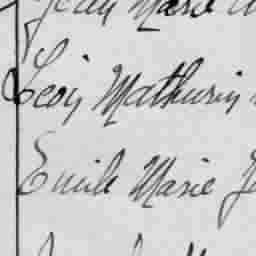 Jean Marie
Léon Mathurin
Emile Marie